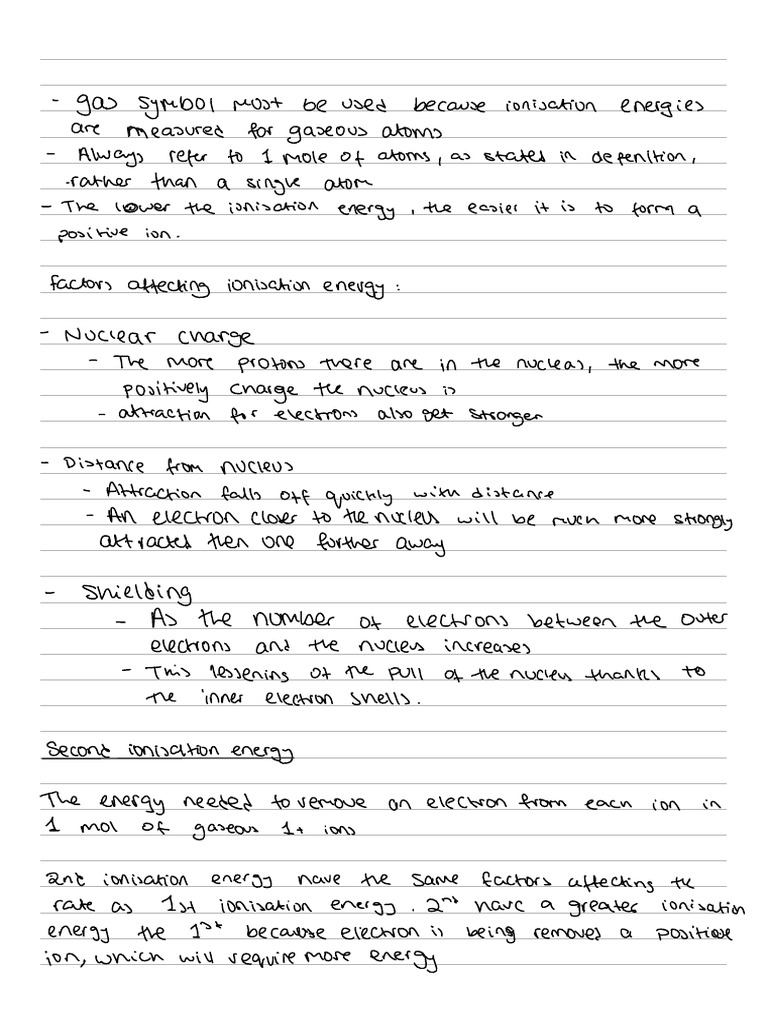 - gas symbol must be used because ionisation energies
are measured for gaseous atoms
- Always refer to 1 mole of atoms, as stated in defenition,
rather than a single atom
- The lower the ionisation energy, the easier it is to form a
positive ion.
factors affecting ionisation energy:
- Nuclear charge
- The more protons there are in the nucleas, the more
positively charge the nucleus is
- attraction for electrons also get stronger
- Distance from nucleus
- Attraction falls off quickly with distance
- An electron closer to the nucleus will be much more strongly
attracted then one further away
- Shielding
- As the number of electrons between the outer
electrons and the nucleus increases
- This lessening of the pull of the nucleus thanks to
the inner electron shells.
Second ionisation energy
The energy needed to remove an electron from each ion in
1 mol of gaseous 1+ ions
2nd ionisation energy have the same factors affecting the
rate as 1st ionisation energy. 2nd have a greater ionisation
energy the 1st because electron is being removed a positive
ion, which will require more energy